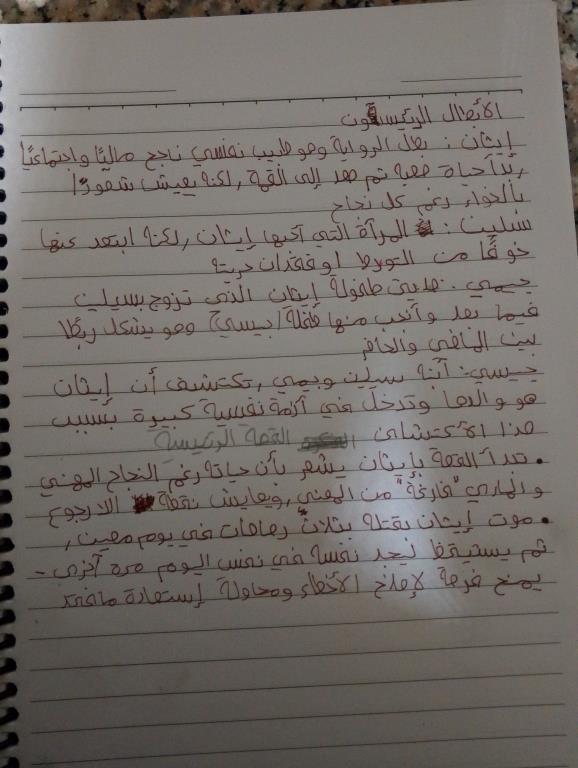 الأبطال الرئيسيون
إيثان: بطل الرواية وهو طبيب نفسي ناجح ماليًا واجتماعيًا
بدأ حياة صعبة ثم صعد إلى القمة, لكنه يعيش شعورًا
بالخواء رغم كل نجاح
سيلين: المرأة التي أحبها إيثان, لكنه ابتعد عنها
خوفًا من التورط او فقدان حريته
جيمي: صديق طفولة إيثان الذي تزوج بسيلين
فيما بعد وأنجب منها طفلة (جيسي) وهو يشكل ربطًا
بين الماضي والحاضر
جيسي: آبنة سيلين وجيمي, تكتشف أن إيثان
هو والدها وتدخل في أزمة نفسية كبيرة بسبب
هذا الأكتشاف
القصة الرئيسية
• تبدأ القصة بإيثان يشعر بأن حياته رغم النجاح المهني
والمادي "فارغة" من المعنى, ويعايش نقطة الارجوع
• موت إيثان بقتله بثلاث رصاصات في يوم معين,
ثم يستيقظ ليجد نفسه في نفس اليوم مرة آخرى -
يمنح فرصة لإصلاح الأخطاء ومحاولة إستعادة مافقد